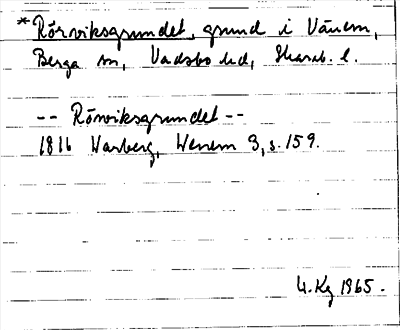 * Rörviksgrundet, grund i Vänern,
Berga sn, Vadsbo hd, Skarab. l.
-- Rörviksgrundet --
1816 Warberg, Wenern 3, s. 159.
4. Kg 1965.